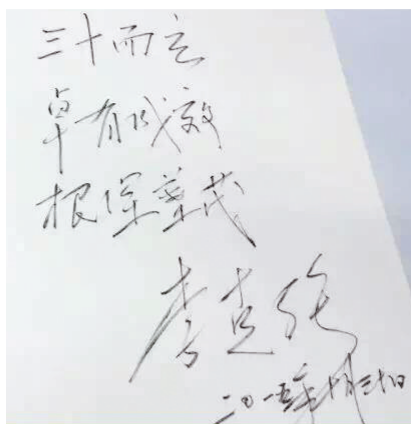 三十而立
卓有成效
根深叶茂
李克强
二〇一五年十月三十日